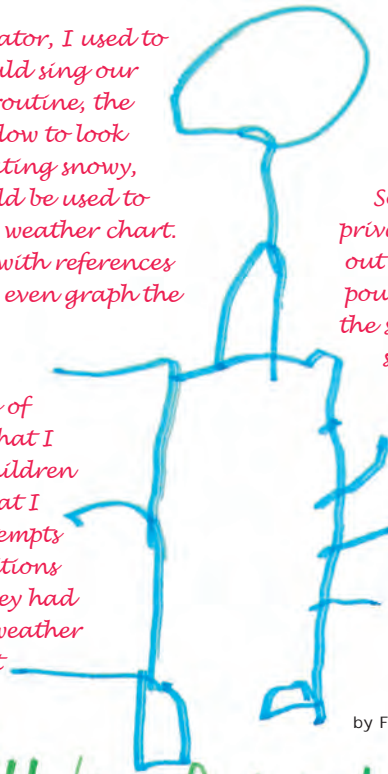 ator, I used to
uld sing our
routine, the
low to look
ting snowy,
ld be used to
weather chart.
with references
even graph the
of
hat I
ildren
at I
empts
tions
ey had
weather
t
S
priv
out
pou
the s
s
by F